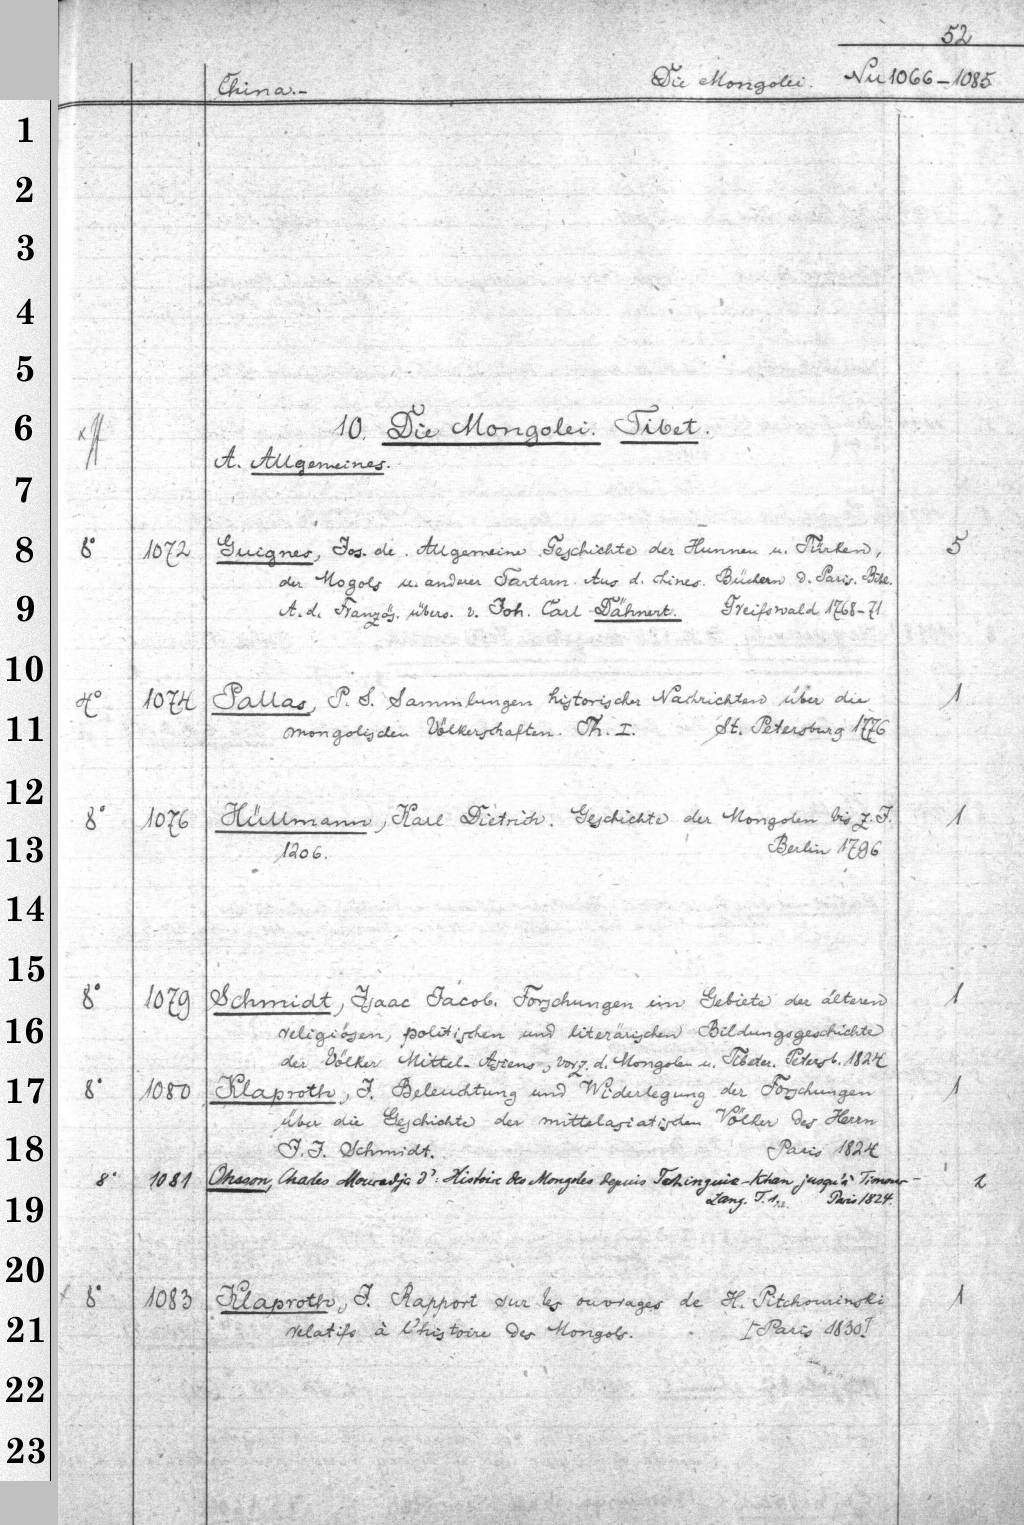 52
China.- Die Mongolei. Nu 1066-1085
1
2
3
4
5
6 10. Die Mongolei. Tibet.
A. Allgemeines.
7
8 8° 1072 Guignes, Jos. de. Allgemeine Geschichte der Hunnen u. Türken, 5
der Mogols u. anderer Tartarn. Aus d. chines. Büchern d. Paris. Bibl.
9 A. d. Französ. übers. v. Joh. Carl Dähnert. Greifswald 1768-71
10
4° 1074 Pallas, P. S. Sammlungen historischer Nachrichten über die 1
11 mongolischen Völkerschaften. Th. I. St. Petersburg 1776
12
8° 1076 Hüllmann, Karl Dietrich. Geschichte der Mongolen bis z. J. 1
13 1206. Berlin 1796
14
15
8° 1079 Schmidt, Isaac Jacob. Forschungen im Gebiete der älteren 1
16 religiösen, politischen und literärischen Bildungsgeschichte
der Völker Mittel-Asiens, vorz. d. Mongolen u. Tibeter. Petersb. 1824
17 8° 1080 Klaproth, J. Beleuchtung und Widerlegung der Forschungen 1
über die Geschichte der mittelasiatischen Völker des Herrn
18 J. J. Schmidt. Paris 1824
8° 1081 Ohsson, Charles Mouradja d': Histoire des Mongoles depuis Tchinguiz-Khan jusqu'à Timour- 2
19 Lang. T. 1 Paris 1824.
20
8° 1083 Klaproth, J. Rapport sur les ouvrages de H. Pitchourinski 1
21 relatifs à l'histoire des Mongols. [Paris 1830]
22
23